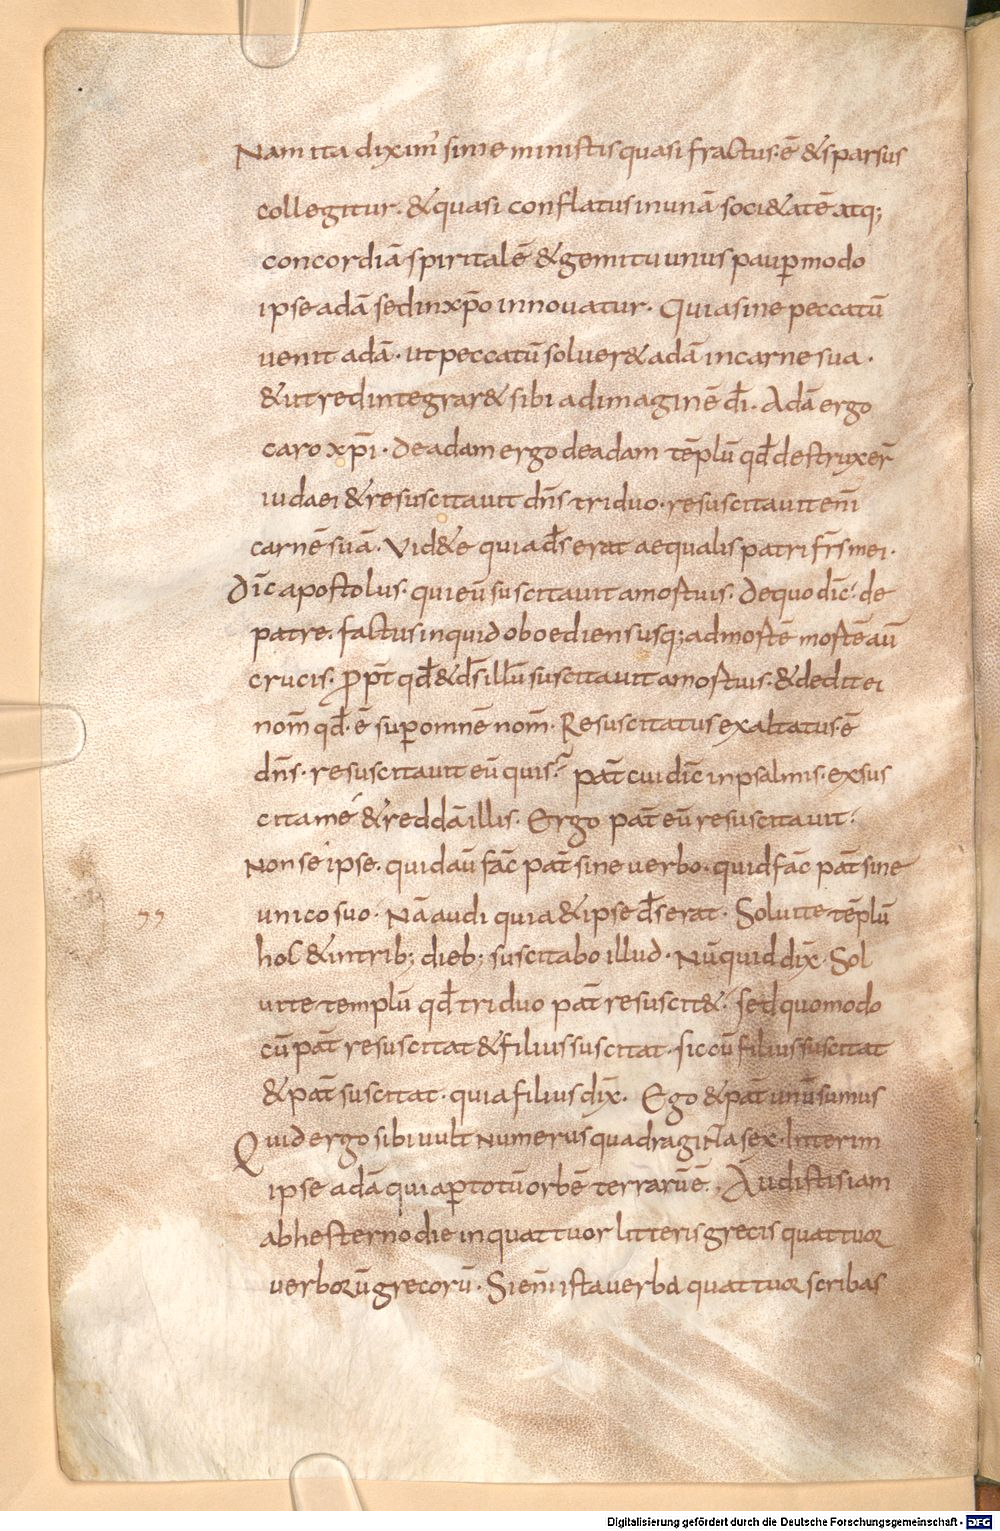 Nam ita diximꝰ si meministis quasi fractus·ē &sparsus
collegitur· &quasi conflatus inunā soci&atē atq;
concordiā spiritalē &gemitu unus pauꝑ modo
ipse adā sed inxp̄o innouatur· Quia sine peccatū
uenit adā· ut peccatū soluer& adā incarne sua·
&ut redintegrar& sibi adimaginē dī· Adā ergo
caro xp̄i· de adam ergo deadam tēplū qd̄ destruxer̄
iudaei &resuscitauit dn̄s triduo· resuscitauit em̄
carnē suā· Vid&e quia ds̄ erat aequalis patri fr̄s mei·
Dīc apostolus· qui eū suscitauit amortuis· de quo dīc· de
patre· factus inquid oboediens usq; admortē mortē aū
crucis· ꝓpt̄ qd̄ &ds̄ illū suscitauit amortuis· &dedit ei
nom̄ qd̄·ē suꝑ omnē nom̄· Resuscitatus exaltatus·ē
dn̄s· resuscitauit eū quis· pat̄ cui dīc inpsalmis· exsus
citamé &reddā illis· Ergo pat̄ eū resuscitauit·
Non se ipse· quid aū fāc pat̄ sine uerbo· quid fāc pat̄ sine
unico suo· Nā audi quia &ipse ds̄ erat· Soluite tēplū
hoc &intrib; dieb; suscitabo illud· Nūquid dix̄· Sol
uite templū qd̄ triduo pat̄ resuscit&· sed quomodo
cū pat̄ resuscitat &filius suscitat· sic cū filius suscitat
&pat̄ suscitat· quia filius dix̄· Ego &pat̄ unū sumus
Quid ergo sibi uult numerus quadraginta sex· Interim
ipse adā quia ꝑ totū orbē terrarū·ē· Audistis iam
ab hesterno die inquattuor litteris grecis quattuor
uerborū grecorū· Si em̄ ista uerba quattuor scribas
Digitalisierung gefördert durch die Deutsche Forschungsgemeinschaft - DFG